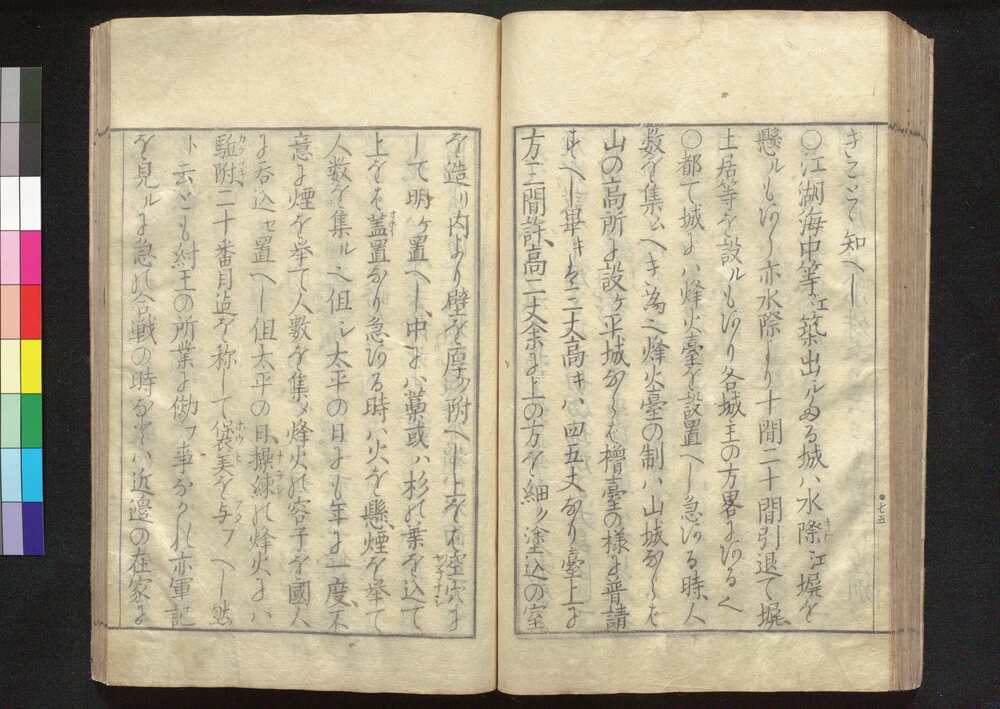 きことと知へし
○江湖海中等江築出ルたる城ハ水際江塀を
懸ルもあり亦水際より十間二十間引退て塀
土居等を設ルもあり各城主の方畧にあるへ
○都て城にハ烽火臺を設置へし急ある時人
数を集ムへき為之烽火臺の制ハ山城ならは
山の高所に設ケ平城ならは櫓臺の様に普請
すへし卑キも三丈高キハ四五丈なり臺上に
方三間許高二丈余に上の方を細ク塗込の室
を造り内より壁を厚ク附へし上をは空穴に
して明ケ置へし中にハ藁或ハ杉の葉を込て
上をは蓋置なり急ある時ハ火を懸煙を挙て
人数を集ル之但シ太平の日にも年に一度不
意に煙を挙て人数を集メ烽火の容子を國人
に呑込セ置へし但太平の日操練の烽火にハ
駈附二十番目迠を称して褒美を与フへし然
ト云とも紂王の所業に傚フ事なかれ亦軍記
を見ルに急の合戦の時なとハ近邊の在家に
七五